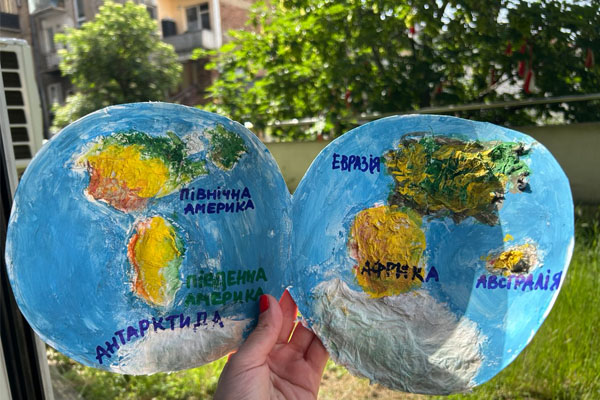 ПІВНІЧНА
АМЕРИКА
ПІВДЕННА
АМЕРИКА
АНТАРКТИДА
ЕВРАЗІЯ
АФРИКА
АВСТРАЛІЯ